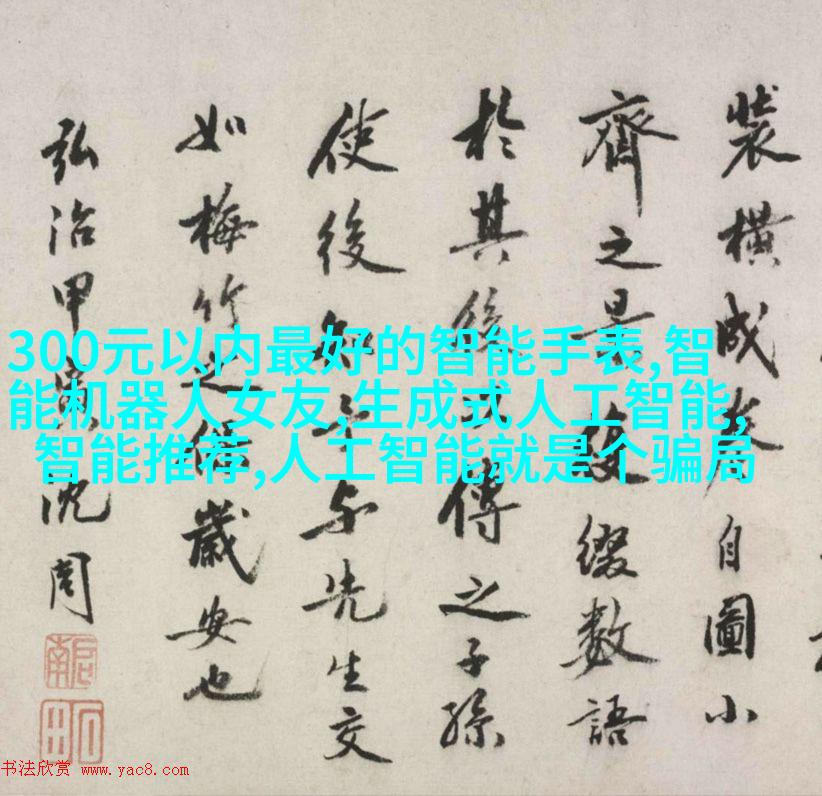 300元以内最好的智能手表,智
能机器人女友,生成式人工智能,
智能推荐,人工智能就是个骗局
裝横成卷自圖小
齊之綴數語
於其後傳之子孫
使後知与先生交
如梅竹之歲安也
弘治甲寅沈周
啟南
石田
书法欣赏 www.yac8.com